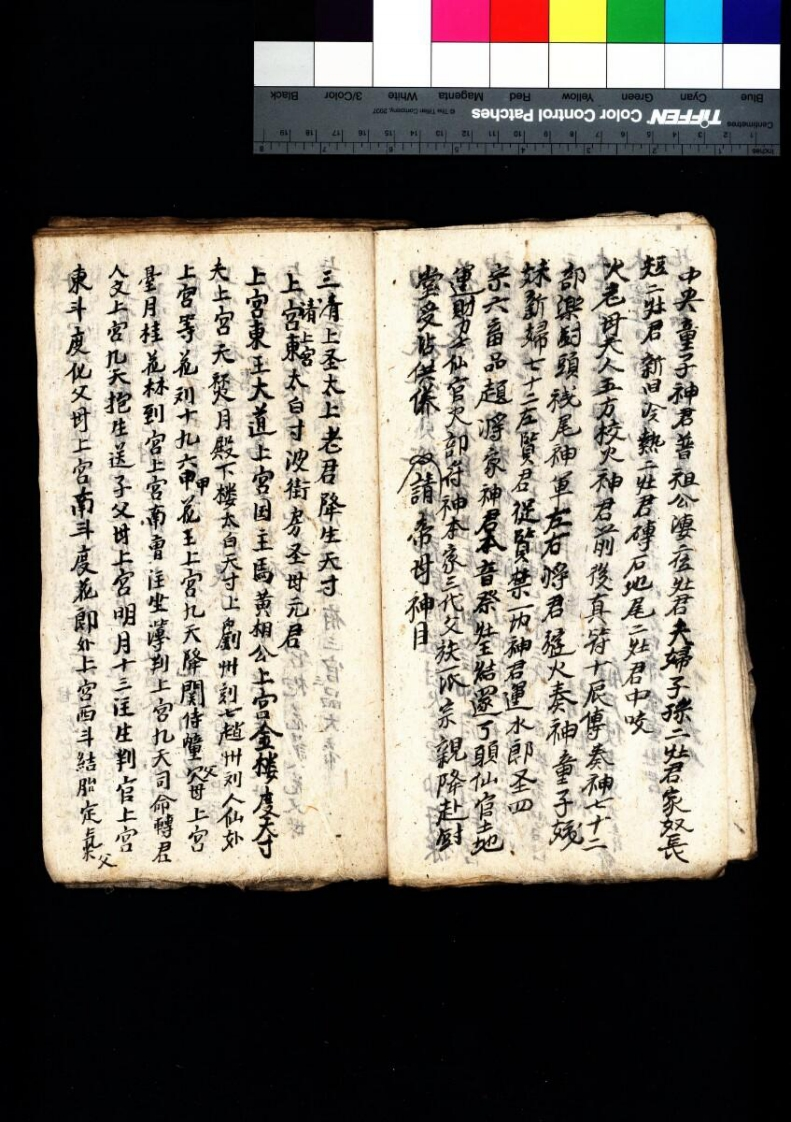 中央童子神君普祖公婆二位灶君夫婦子孫二灶君家奴長
短二灶君新旧冷熱二灶君磚石地尾二灶君中咬
火老母夫人五方校火神君前後真符十展傳奏神七十二
部樂厨頭祧尾神軍左右將君猛火奏神童子
妹新婦七十二左賢君従賢禁一切神君運水郎圣四
宗六畜品趙將家神君本音祭灶王結還丁頭仙官土地
運財力士仙官火部符神本家三代父族一派宗親降赴厨
堂受沾供養 又請帝母神目
三清上圣太上老君降生天寸
請上宮
上宮東太白寸波街房圣母元君
上宮東王大道上宮国主馬黄相公上宮金楼度天寸
夫上宮天月殿下楼太白天寸上劉州刘七趙州刘人仙外
上宮等花刘十九六甲花王上宮九天降閣侍幢父母上宮
星月桂花林到宮上宮南曹注生簿判上宮九天司命轉君
父上宮九天抱生送子父母上宮明月十三注生判官上宮
東斗度化父母上宮南斗度花郎外上宮西斗結胎定氣父
Blue Cyan Green Yellow Red Magenta White 3/Color Black
TIFFEN Color Control Patches
© The Tiffen Company, 2007
Centimetres
1 2 3 4 5 6 7 8 9 10 11 12 13 14 15 16 17 18 19
Inches
1 2 3 4 5 6 7 8